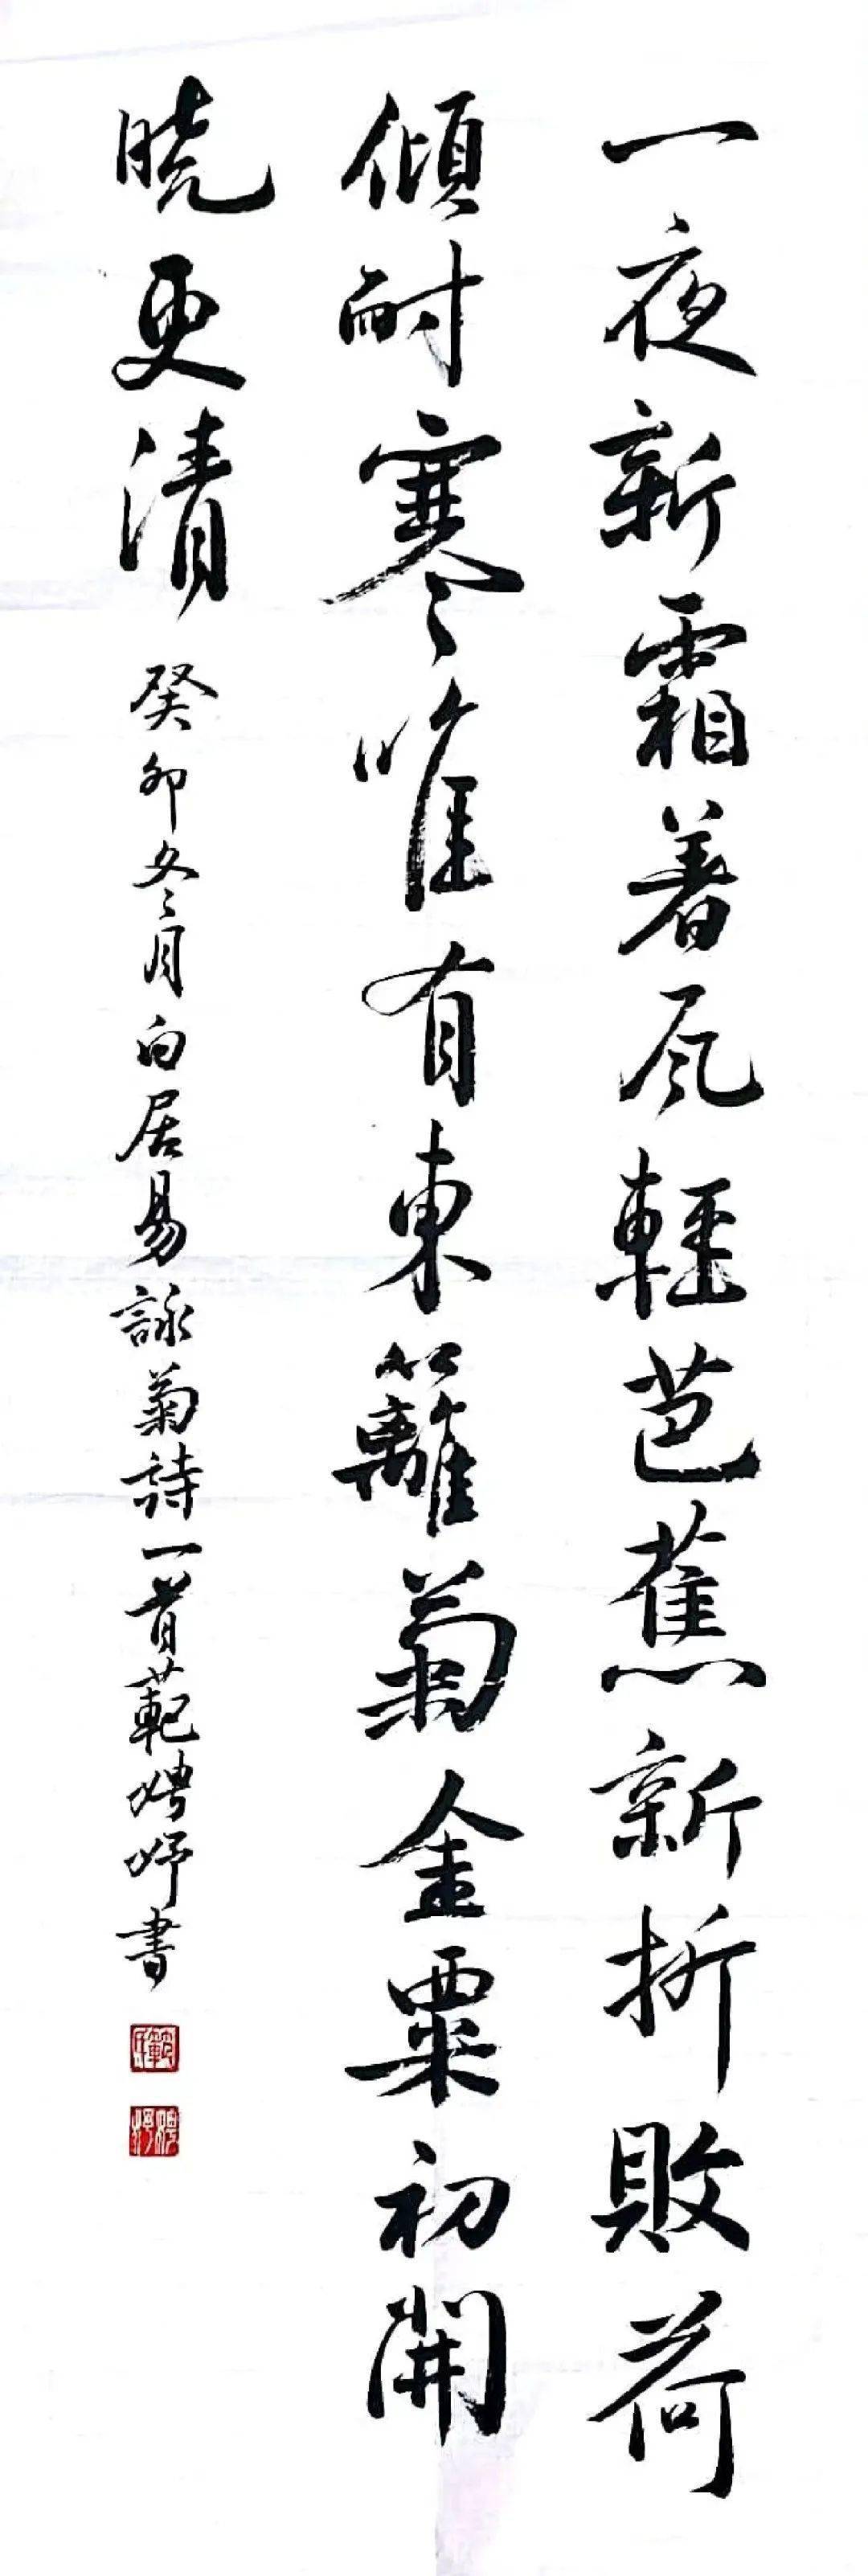 一夜新霜著瓦輕芭蕉新折敗荷
傾耐寒唯有東籬菊金粟初開
曉更清
癸卯冬月白居易詠菊詩一首範娉婷書